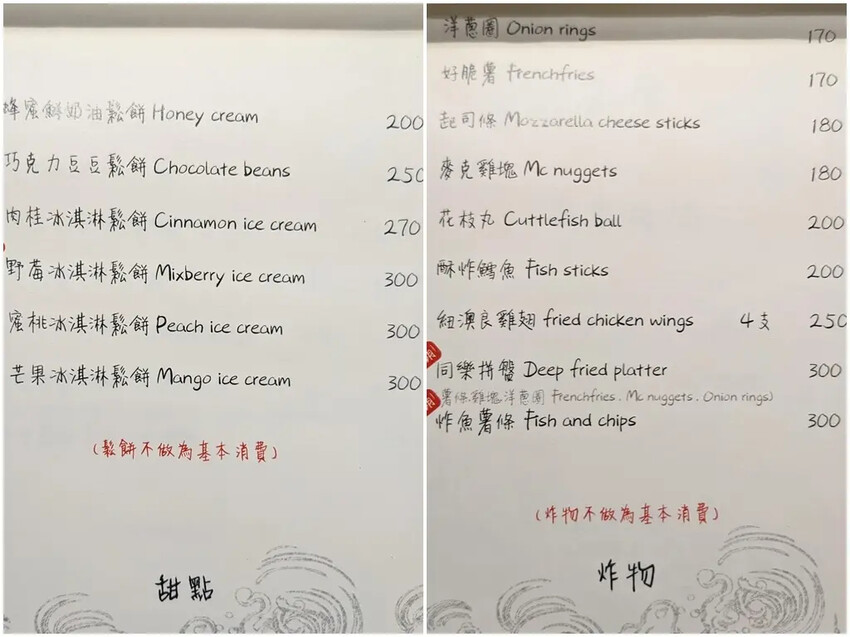 蜂蜜鮮奶油鬆餅 Honey cream 200
巧克力豆豆鬆餅 Chocolate beans 250
肉桂冰淇淋鬆餅 Cinnamon ice cream 270
野莓冰淇淋鬆餅 Mixberry ice cream 300
蜜桃冰淇淋鬆餅 Peach ice cream 300
芒果冰淇淋鬆餅 Mango ice cream 300
(鬆餅不做為基本消費)
甜點
洋蔥圈 Onion rings 170
好脆薯 Frenchfries 170
起司條 Mozzarella cheese sticks 180
麥克雞塊 Mc nuggets 180
花枝丸 Cuttlefish ball 200
酥炸鱈魚 Fish sticks 200
紐澳良雞翅 fried chicken wings 4支 250
同樂拼盤 Deep fried platter 300
薯條.雞塊.洋蔥圈 Frenchfries . Mc nuggets . Onion rings)
炸魚薯條 Fish and chips 300
(炸物不做為基本消費)
炸物